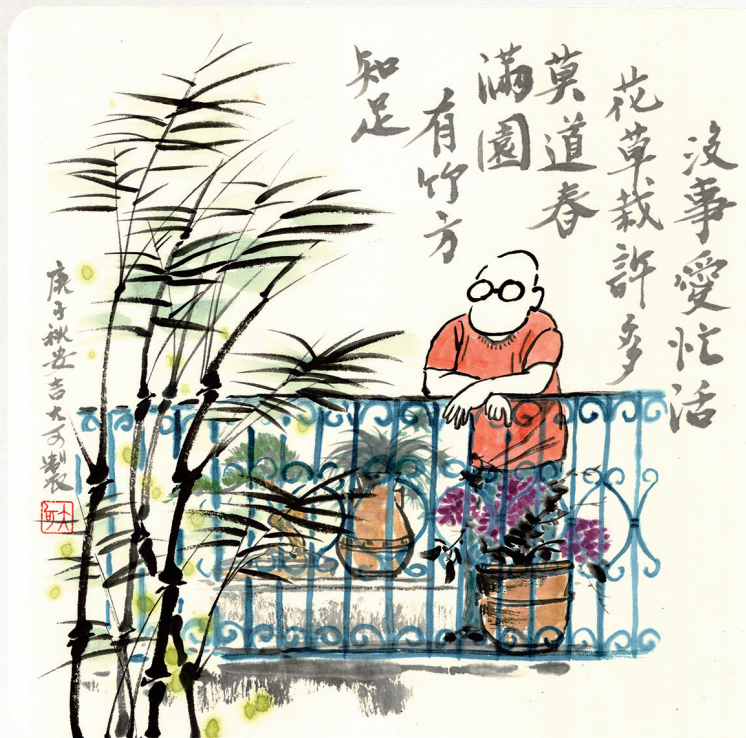 沒事愛忙活
花草栽許多
莫道春
滿園
有竹方
知足
庚子秋安吉大可製
大可